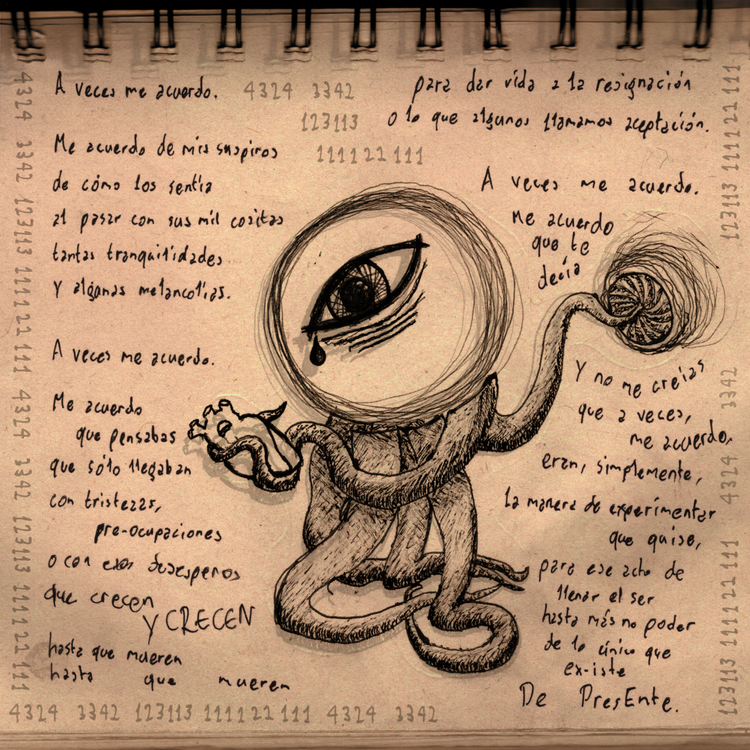 A veces me acuerdo.
4324 3342
123113
111122111
Me acuerdo de mis suspiros
de cómo los sentía
al pasar con sus mil cositas
tantas tranquilidades
Y algunas melancolías.
A veces me acuerdo.
Me acuerdo
que pensabas
que sólo llegaban
con tristezas,
pre-ocupaciones
o con esos desesperos
que crecen
Y CRECEN
hasta que mueren
hasta que mueren
para dar vida a la resignación
o lo que algunos llamamos aceptación.
A veces me acuerdo.
Me acuerdo
que te
decía
Y no me creías
que a veces,
me acuerdo,
eran, simplemente,
la manera de experimentar
que quise,
para ese acto de
llenar el ser
hasta más no poder
de lo único que
ex-iste
De PresEnte.
4324 3342 123113 111122111 4324 3342 123113 111122111
4324 3342 123113 111122111 4324 3342
123113 111122111
4324 3342
123113 111122111